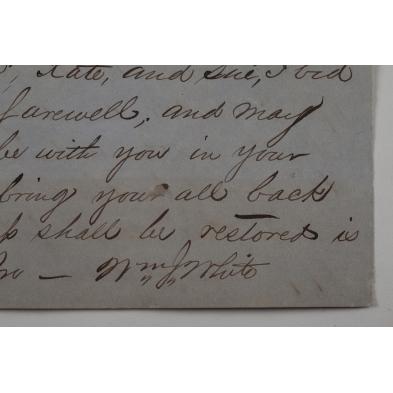 Kate, and sue, I bid
farewell, and may
be with you in your
bring your all back
shall be restored is
— Wm J White